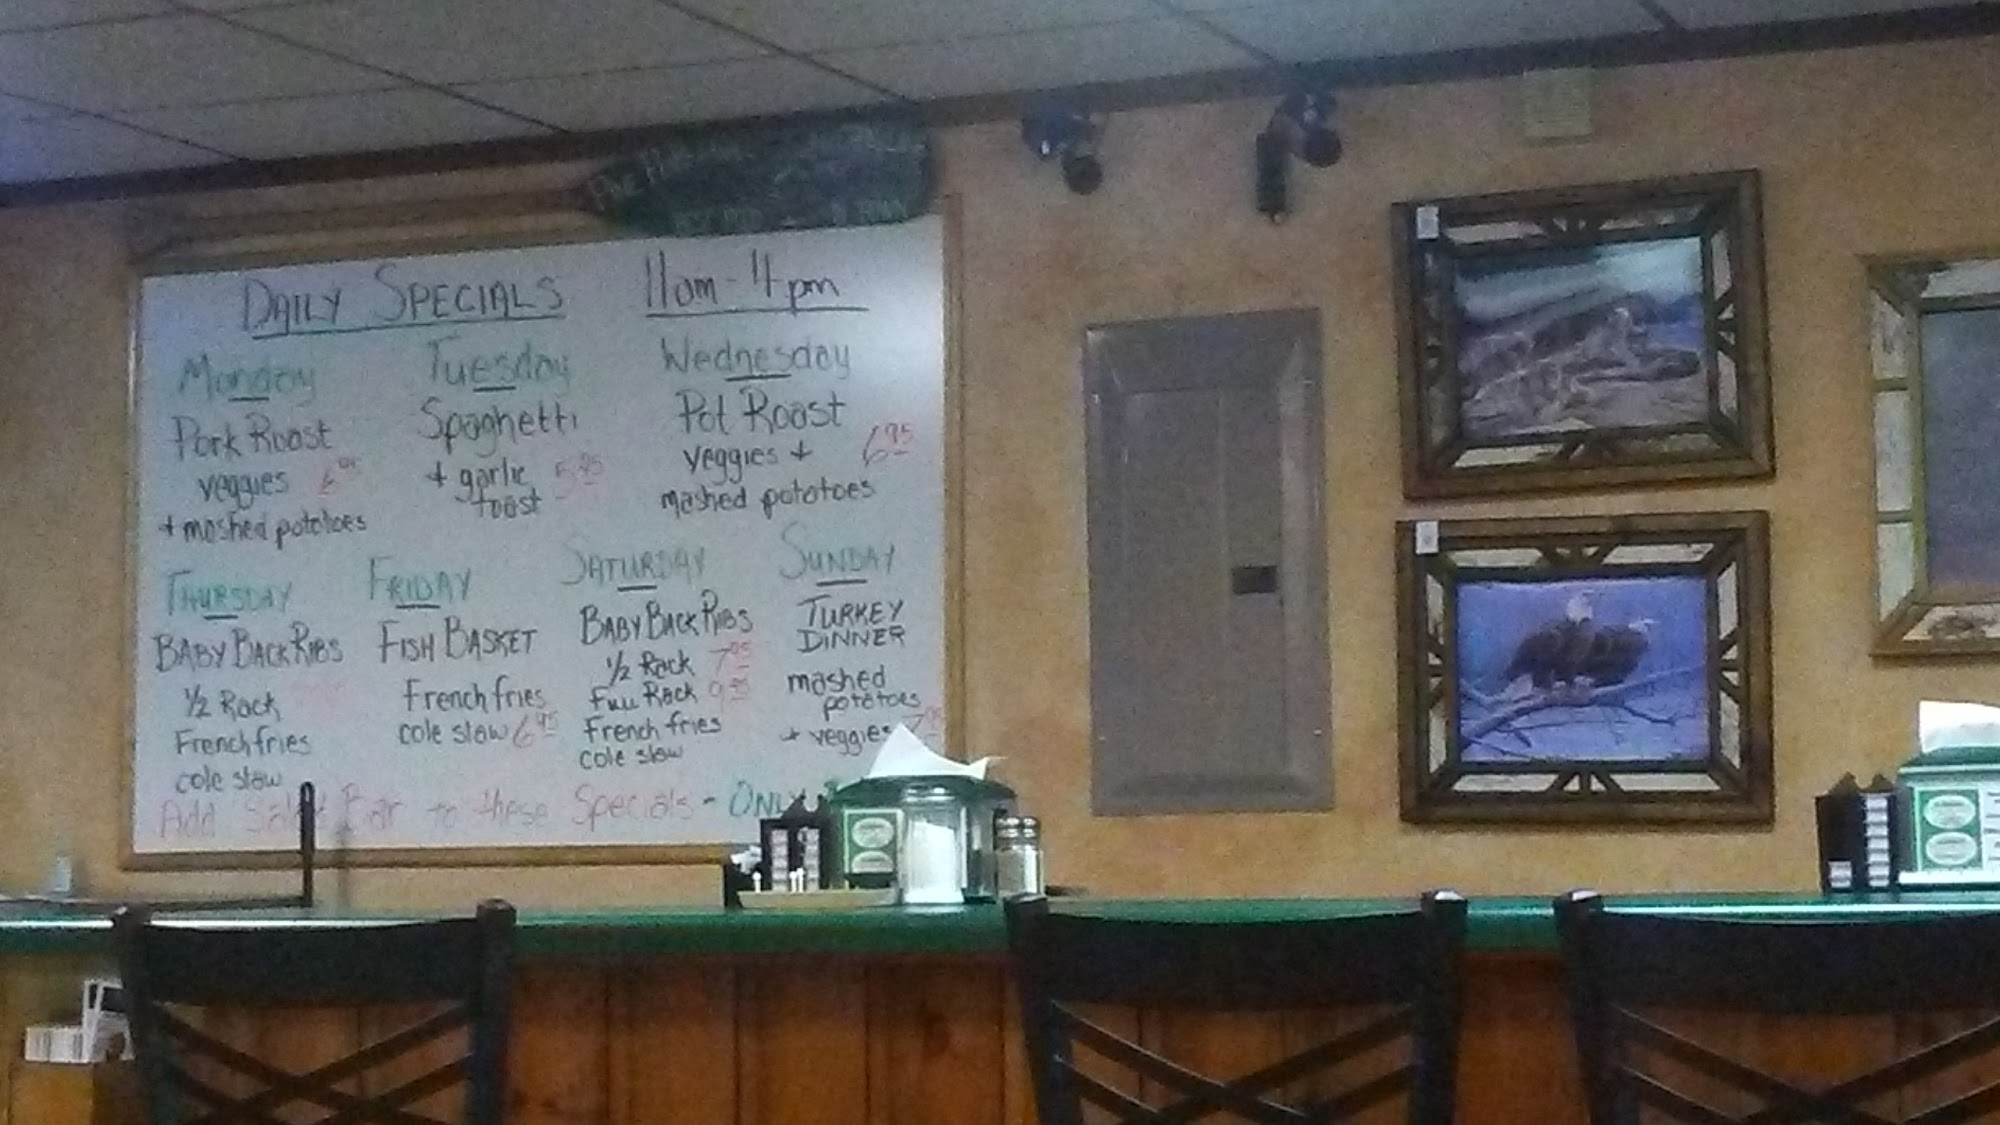 DAILY SPECIALS 11am - 4pm
Monday
Pork Roast
veggies 6 95
+ mashed potatoes
Tuesday
Spaghetti
+ garlic 5 95
toast
Wednesday
Pot Roast
veggies + 6 95
mashed potatoes
THURSDAY
BABY BACK RIBS
1/2 Rack
French fries
cole slaw
FRIDAY
FISH BASKET
French fries
cole slaw 6 95
SATURDAY
BABY BACK RIBS
1/2 Rack 7 95
Full Rack 9 95
French fries
cole slaw
SUNDAY
TURKEY
DINNER
mashed
potatoes
+ veggies 7 95
Add Salad Bar to these Specials - ONLY